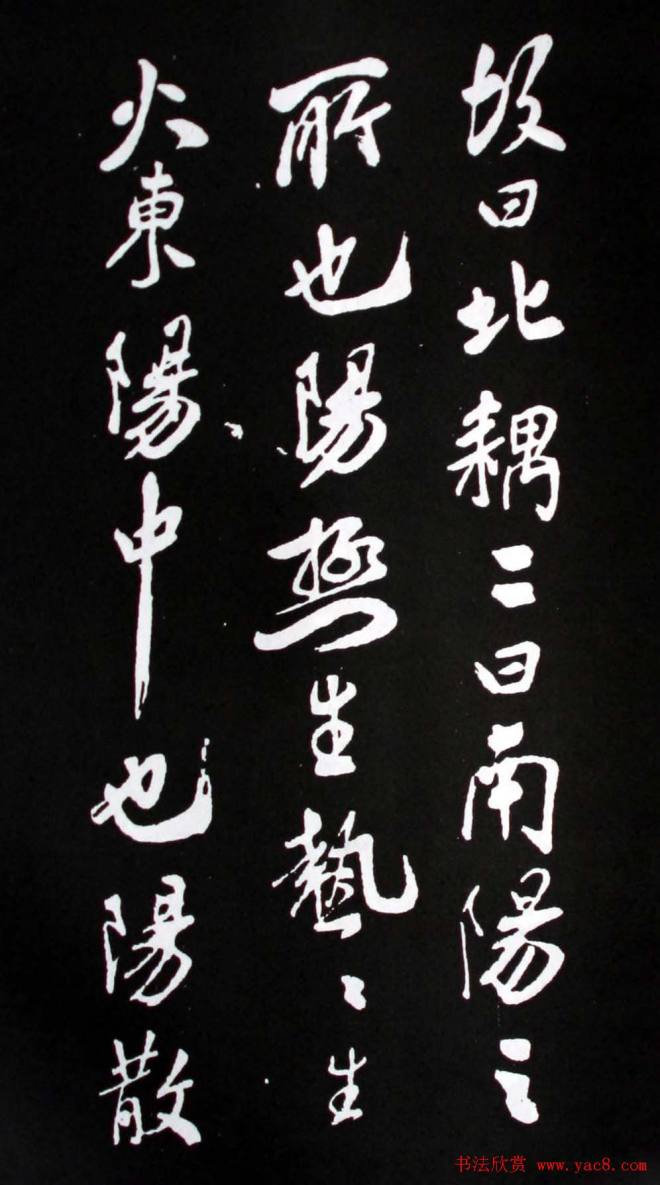 故曰北耦二曰南陽之
所也陽極生熱〻生
火東陽中也陽散
书法欣赏 www.yac8.com